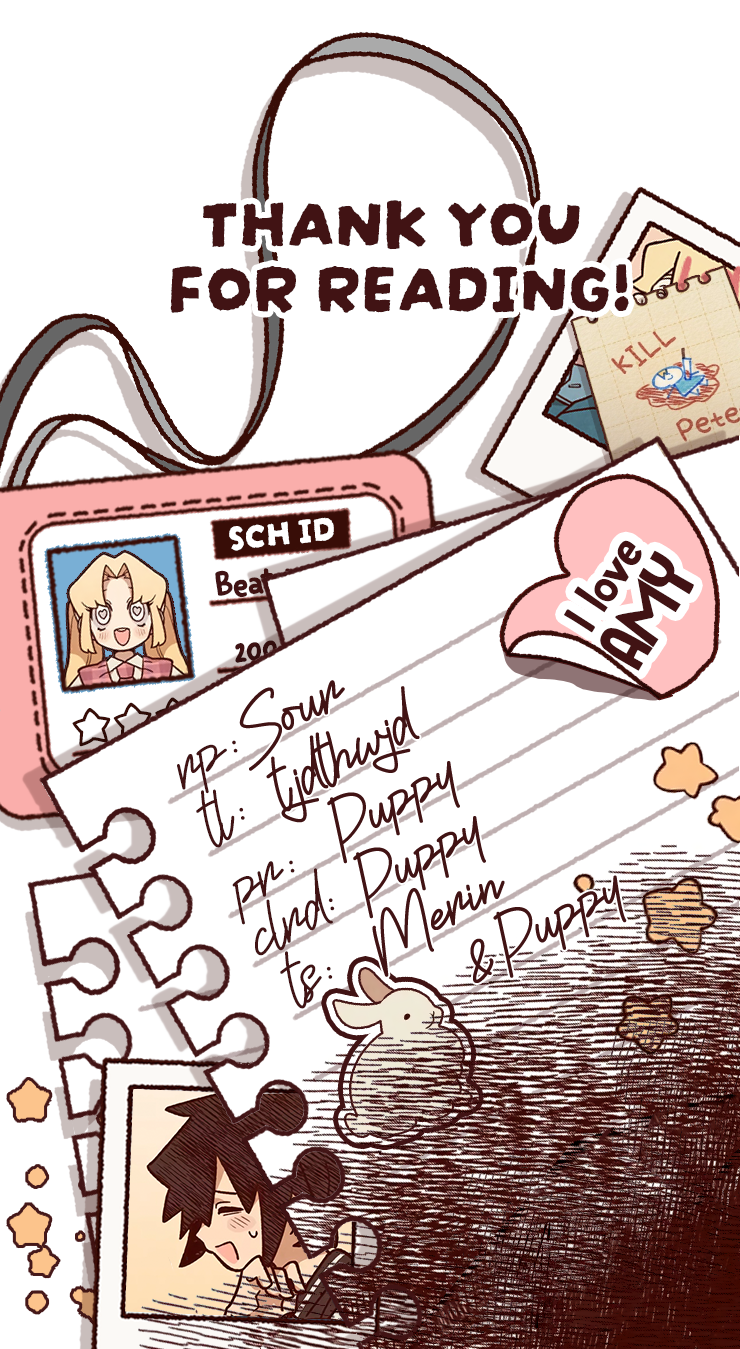 THANK YOU
FOR READING!
KILL
Pete
I love
AMY
SCH ID
Bea
200
rp: Sour
tl: tjdthwjd
pr: Puppy
clrd: Puppy
ts: Merin
& Puppy